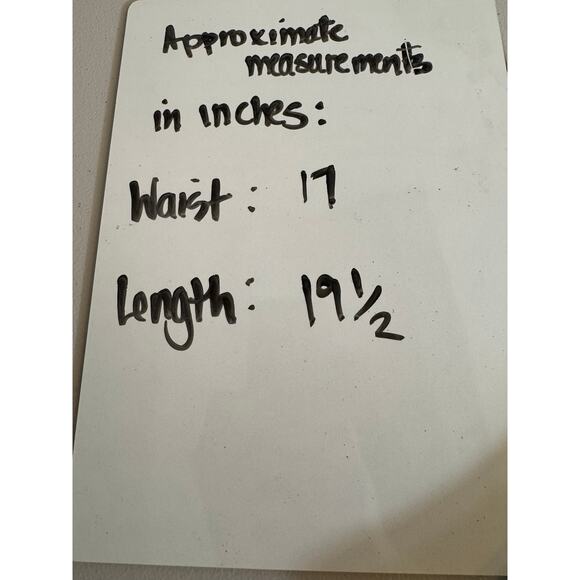 Approximate
measurements
in inches:
Waist: 17
Length: 19 1/2